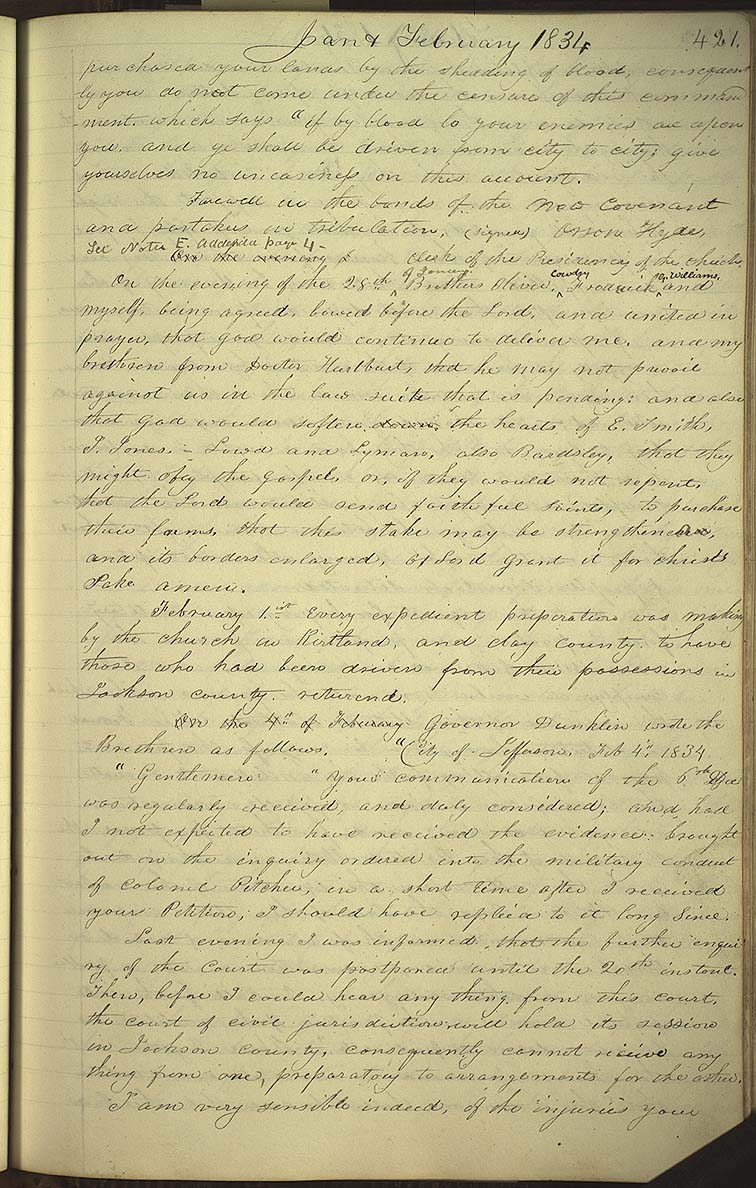 Jan & February 1834 421.
purchased your lands by the shedding of blood, consequent
ly you do not come under the censure of this command
-ment. which says "if by blood lo your enemies are upon
you. and ye shall be driven from city to city; give
yourselves no uneasiness on this account.
Farewell in the bonds of the new covenant
and partakers in tribulation, (signed) Orson Hyde,
clerk of the Presidency of the church.
See Note E. Addenda page 4–
On the evening
On the evening of the 28th of January Brothers Oliver Cowdery, Frederick G. Williams, and
myself, being agreed, bowed before the Lord, and united in
prayer, that God would continue to deliver me, and my
brethren from Doctor Hurlburt, that he may not prevail
against us in the law suite that is pending: and also
that God would soften down the hearts of E. Smith,
J. Jones, – Lowd and Lyman, also Bardsley, that they
might obey the gospel, or, if they would not repent,
that the Lord would send faithful saints, to purchase
their farms, that this stake may be strengthened,
and its borders enlarged, O Lord grant it for christs
Sake amen.
February 1.st Every expedient preparation was making
by the church in Kirtland, and clay county. to have
those who had been driven from their possessions in
Jackson county. returend.
On the 4th of February Governor Dunklin wrote the
Brethren as follows. "City of Jefferson, Feb 4th 1834
"Gentlemen: "Your communication of the 6th Dec
was regularly received, and duly considered; and, had
I not expected to have received the evidence brought
out on the inquiry ordered into the military conduct
of Colonel Pitcher, in a short time after I received
your Petition, I should have replied to it long since.
Last evening I was informed, that the further enqui
ry of the Court was postponed until the 20th instant.
Then, before I could hear any thing from this court,
the court of civil jurisdiction will hold its session
in Jackson County, consequently cannot receive any
thing from one, preparatory to arrangements for the other.
I am very sensible indeed, of the injuries your